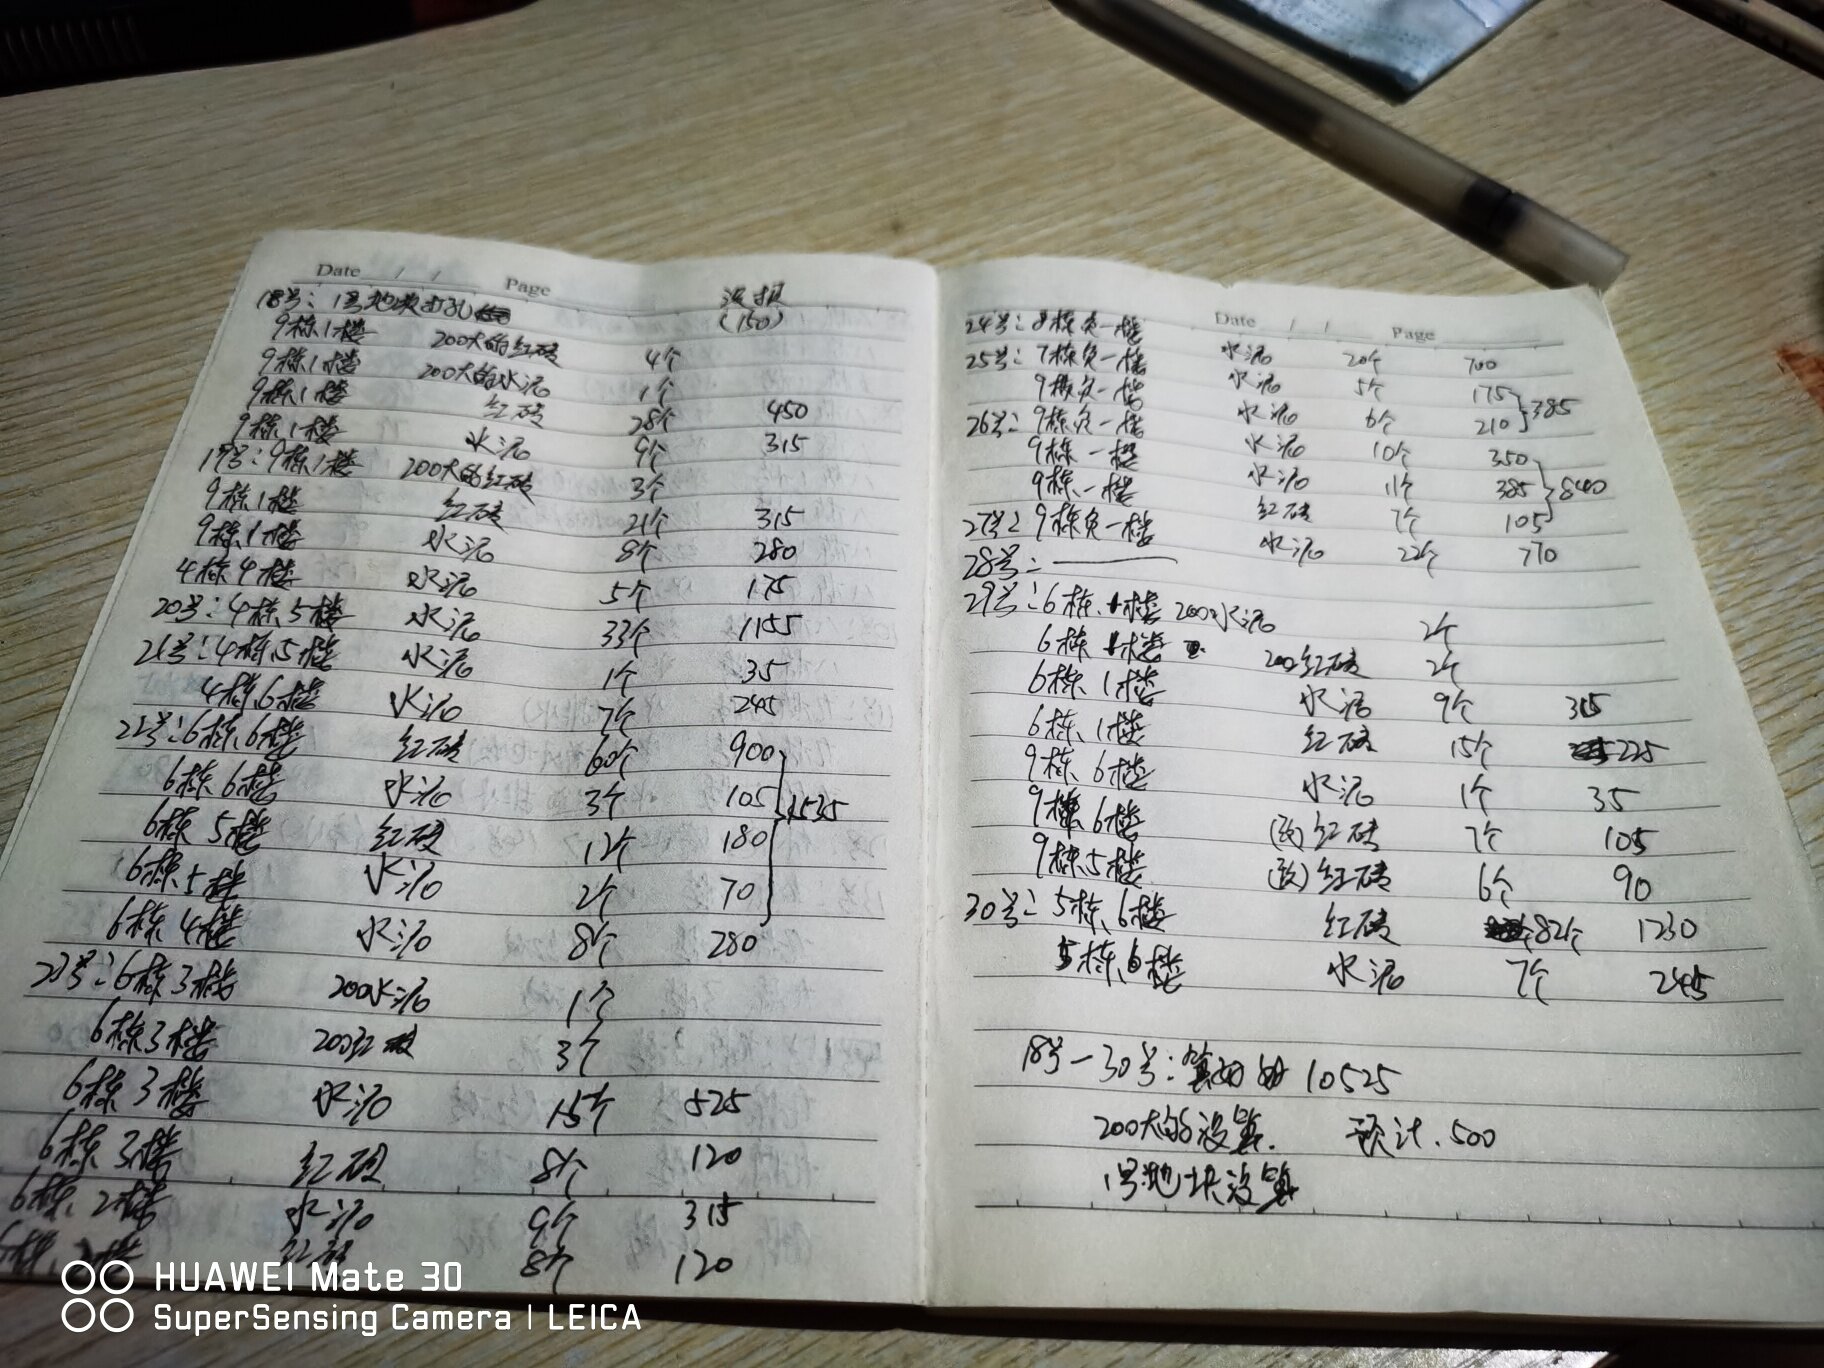 Date / / Page
18号：1号地块打孔 没报
(150)
9栋1楼 200大的红砖 4个
9栋1楼 200大的水泥 1个
9栋1楼 红砖 28个 450
9栋1楼 水泥 9个 315
19号：9栋1楼 200大的红砖 3个
9栋1楼 红砖 21个 315
9栋1楼 水泥 8个 280
4栋4楼 水泥 5个 175
20号：4栋5楼 水泥 33个 1155
21号：4栋5楼 水泥 1个 35
4栋6楼 水泥 7个 245
22号：6栋6楼 红砖 60个 900
6栋6楼 水泥 3个 105 1535
6栋5楼 红砖 12个 180
6栋5楼 水泥 2个 70
6栋4楼 水泥 8个 280
23号：6栋3楼 200水泥 1个
6栋3楼 200红砖 3个
6栋3楼 水泥 15个 525
6栋3楼 红砖 8个 120
6栋2楼 水泥 9个 315
6栋2楼 红砖 8个 120
Date / / Page
24号：8栋负一楼 水泥 20个 700
25号：7栋负一楼 水泥 5个 175
9栋负一楼 水泥 6个 210 385
26号：9栋负一楼 水泥 10个 350
9栋一楼 水泥 11个 385 840
9栋一楼 红砖 7个 105
27号：9栋负一楼 水泥 22个 770
28号：——
29号：6栋1楼 200水泥 2个
6栋1楼 200红砖 2个
6栋1楼 水泥 9个 315
6栋1楼 红砖 15个 225
9栋6楼 水泥 1个 35
9栋6楼 (改)红砖 7个 105
9栋5楼 (改)红砖 6个 90
30号：5栋6楼 红砖 82个 1230
5栋6楼 水泥 7个 245
18号—30号：10525
200大的没算. 预计.500
1号地块没算
HUAWEI Mate 30
SuperSensing Camera | LEICA